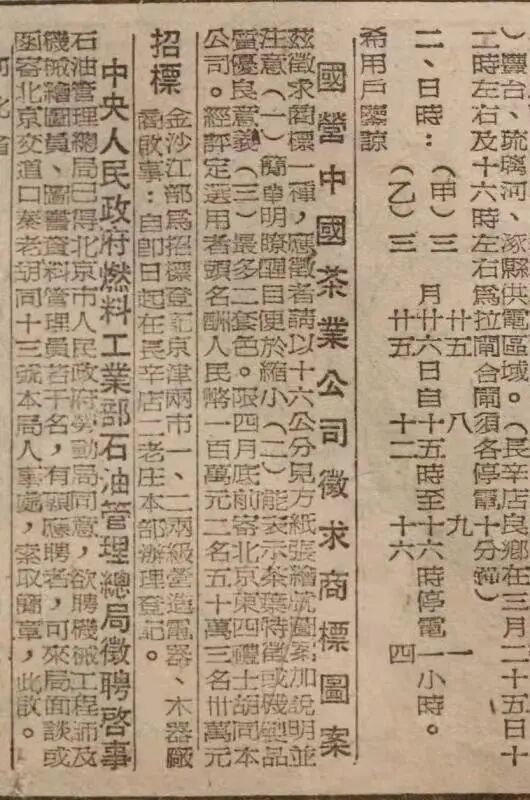 ）豐台、琉璃河、涿縣供電區域。（長辛店良鄉在三月二十五日十
二時左右及十六時左右爲拉閘合閘須各停電十分鐘）
（甲）三 廿五 八 九 一
二、日時： 月廿六日自十五時至十六時停電一小時。
（乙）三 廿五 十二 十六 四
希用戶鑒諒
國營中國茶業公司徵求商標圖案
茲徵求商標一種，應徵者請以十六公分見方紙張繪就圖案加說明並
注意（一）簡單明瞭醒目便於縮小（二）能表示茶葉特徵或製品
質優良意義（三）最多二套色。限四月底前寄北京東四禮士胡同本
公司。經評定選用者頭名酬人民幣一百萬元二名五十萬三名卅萬元
招標
金沙江部爲招標登記京津兩市一、二兩級營造電器、木器廠
商啟事：自卽日起在長辛店二老庄本部辦理登記。
中央人民政府燃料工業部石油管理總局徵聘啓事
石油管理總局已得北京市人民政府勞動局同意，欲聘機械工程師及
機械繪圖員、圖書資料管理員若干名，有願應聘者，可來局面談或
函寄北京交道口秦老胡同十三號本局人事處，索取簡章，此啟。